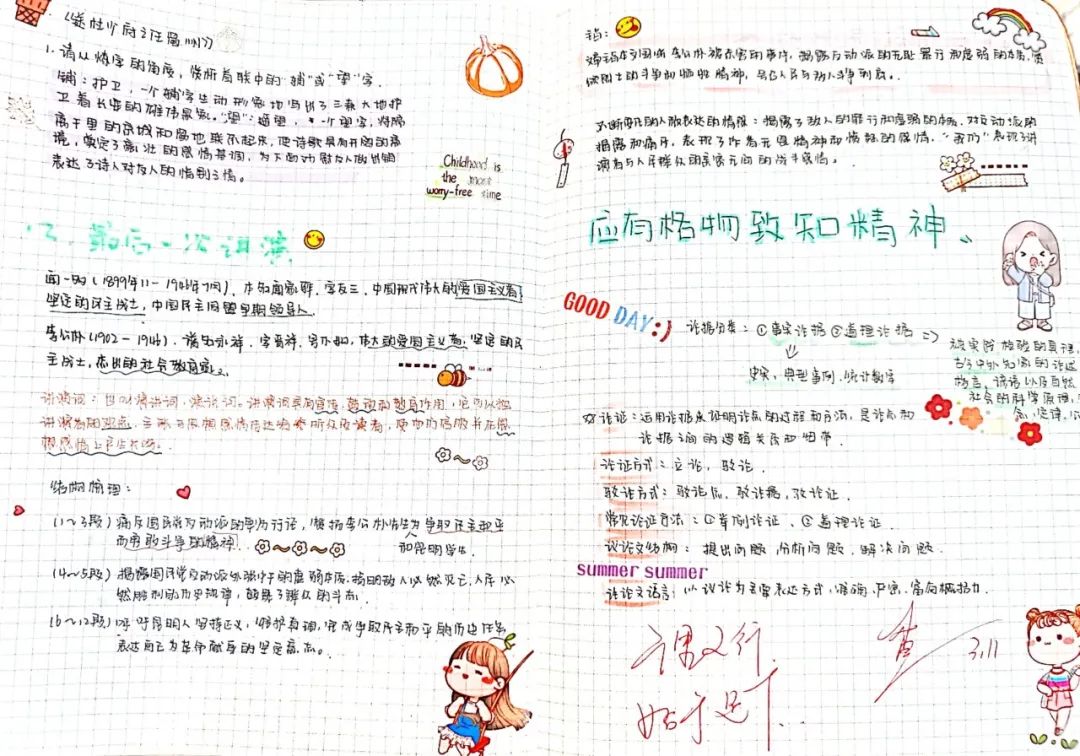 《送杜少府之任蜀州》
1. 请从炼字的角度，赏析首联中的"辅"或"望"字。
辅：护卫，一个辅字生动形象地写出了三秦大地护
卫着长安的雄伟景象。"望"：遥望，一个望字，将相
离千里的京城和蜀地联系起来，使诗歌具有开阔的意
境，奠定了豪壮的感情基调，为下面劝慰友人做铺垫
表达了诗人对友人的惜别之情。
Childhood is
the most
worry-free time
二、最后一次讲演
闻一多（1899年11-1946年7月），本名闻家骅，字友三，中国现代伟大的爱国主义者，
坚定的民主战士，中国民主同盟早期领导人
李公朴（1902-1946），伟大的爱国主义者，坚定的民
主战士，杰出的社会教育家。
讲演词：也叫演讲词，演说词。讲演词具有宣传，鼓动和教育作用，它可以把
讲演者的观点，主张与思想感情传达给听众及读者，
想感情上产生共鸣。
结构梳理：
（1~3段）痛斥国民党反动派的卑劣行径，赞扬李公朴先生为争取民主和平
而勇敢斗争的精神
和昆明学生.
（4~5段）揭露国民党反动派外强中干的虚弱本质，指明敌人必然灭亡，人民必
然胜利的历史规律，鼓舞了群众的斗志.
（6~12段）呼吁昆明人坚持正义，维护真理，完成争取民主和平的历史任务
表达自己为革命献身的坚定意志。
揭露反动派的无耻暴行和虚弱的本质，
不断变化的人称表达的情感：揭露了敌人的罪行和虚弱的本质，对反动派的
揭露和痛斥，表现了作者无畏精神和愤怒的感情，"我们"表现了讲
演者与人民群众的亲密无间的战斗感情。
应有格物致知精神
GOOD DAY:)
论据分类：①事实论据 ②道理论据 =>
史实，典型事例，统计数字
被实践检验的真理，
古今中外名家的论述
格言，谚语以及自然
社会的科学原理，
念，定律，公
论证：运用论据来证明论点的过程和方法，是论点和
论据之间的逻辑关系和纽带.
论证方式：立论，驳论.
驳论方式：驳论点，驳论据，驳论证.
常见论证方法：①举例论证，②道理论证.
议论文结构：提出问题，分析问题，解决问题.
summer summer
议论文语言：以议论为主要表达方式，准确，严密，富有概括力.
查 3.11
始于足下